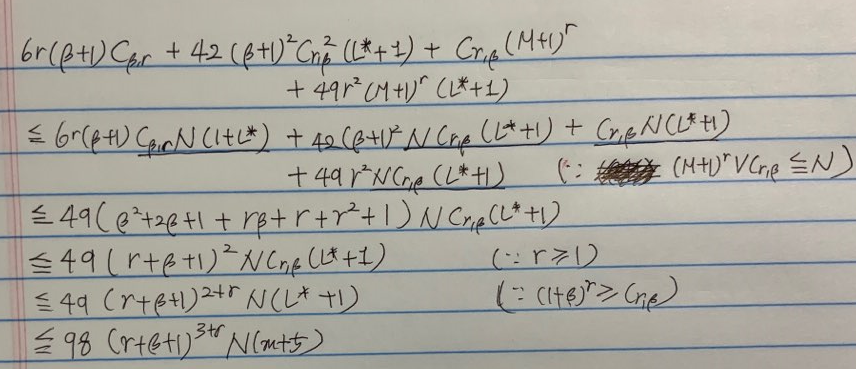 6r(β+1)C_{β,r} + 42(β+1)²C_{r,β}²(L*+1) + C_{r,β}(M+1)^r
+ 49r²(M+1)^r (L*+1)
≦ 6r(β+1) C_{β,r}N(1+L*) + 42(β+1)²NC_{r,β}(L*+1) + C_{r,β}N(L*+1)
+ 49r²NC_{r,β}(L*+1) (∵ (M+1)^r ∨ C_{r,β} ≦ N)
≦ 49(β²+2β+1 + rβ+r+r²+1) NC_{r,β}(L*+1)
≦ 49(r+β+1)²NC_{r,β}(L*+1) (∵ r≥1)
≦ 49(r+β+1)^{2+r} N(L*+1) (∵ (1+β)^r ≥ C_{r,β})
≦ 98(r+β+1)^{3+r} N(m+5)